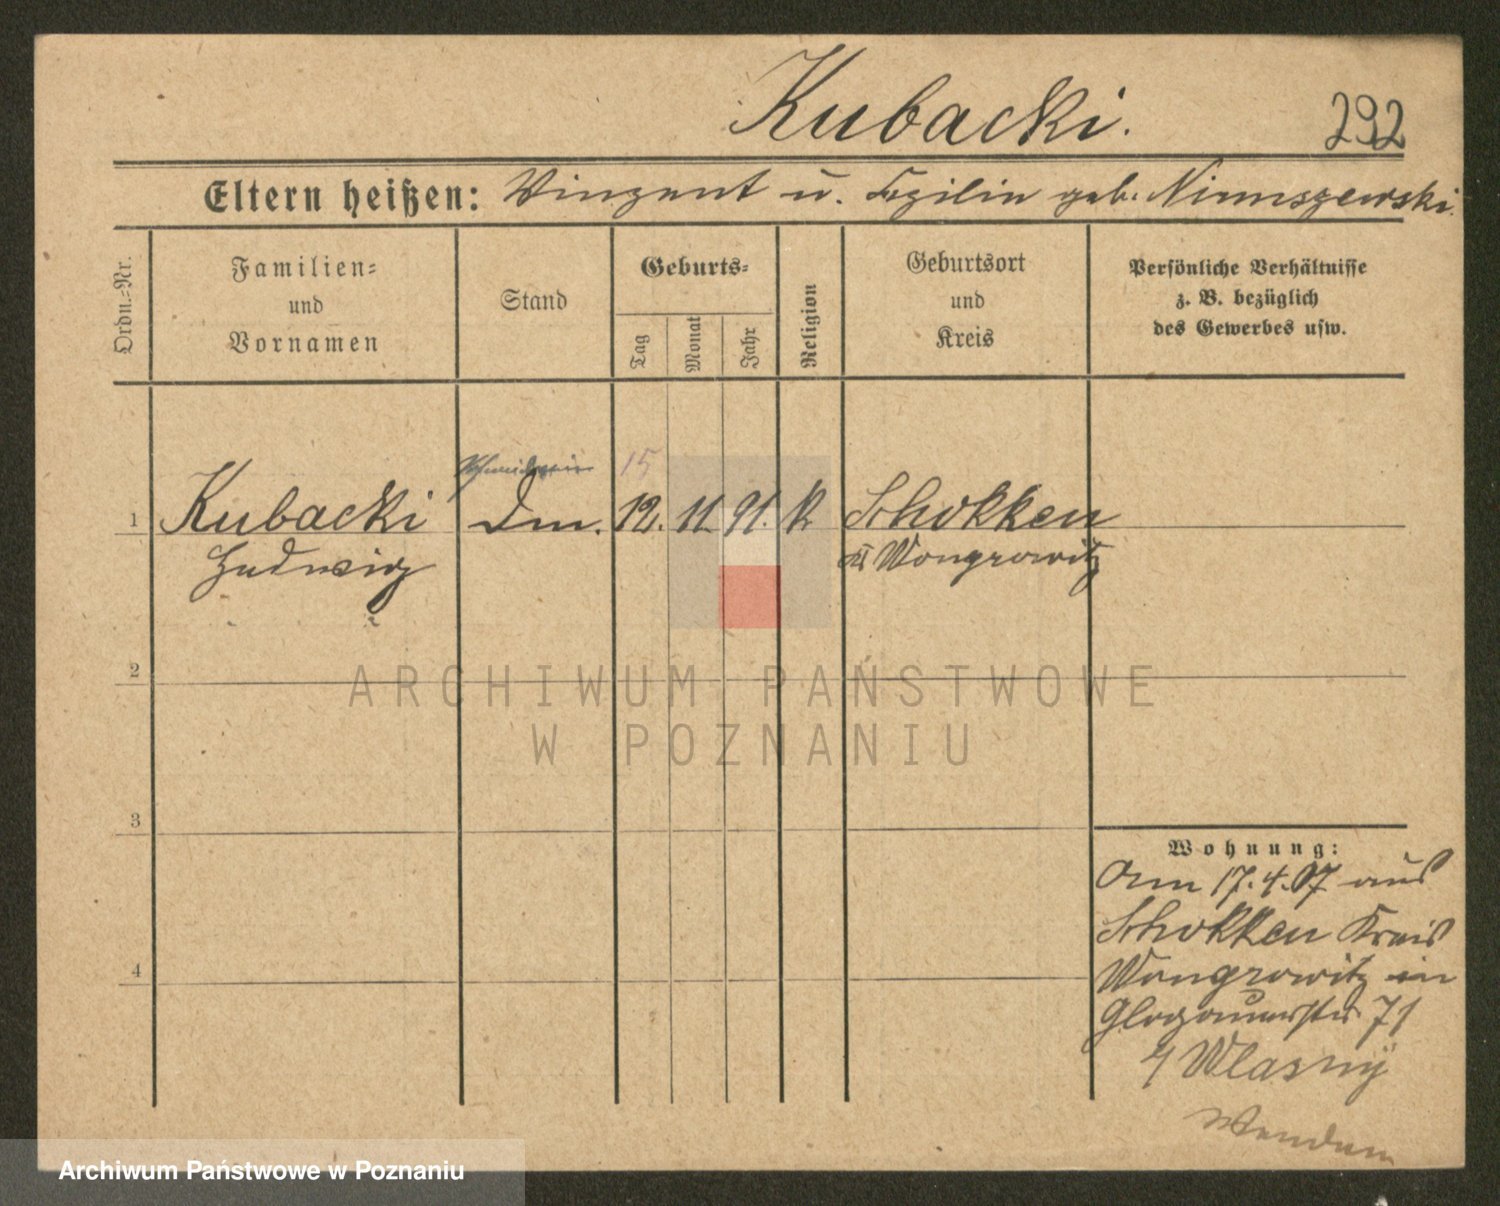 Kubacki.
292
Eltern heißen: Vinzent u. Cezilie geb. Niemszewski.
Ordn.-Nr.
Familien-
und
Vornamen
Stand
Geburts-
Tag
Monat
Jahr
Religion
Geburtsort
und
Kreis
Persönliche Verhältnisse
z. B. bezüglich
des Gewerbes usw.
15
1 Kubacki Dm. 12. 11. 91. k Schokken
Hedwig Wongrowitz
2
ARCHIWUM PAŃSTWOWE
W POZNANIU
3
Wohnung:
Am 17.4.07 aus
Schokken Kreis
Wongrowitz in
Glogauerstr 71
Wlasny
Wenden
4
Archiwum Państwowe w Poznaniu